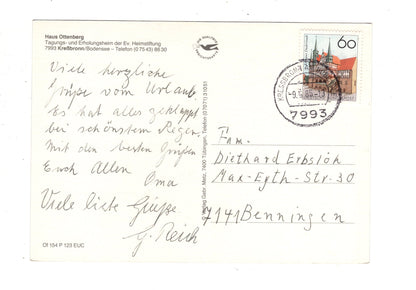 Haus Ottenberg
Tagungs- und Erholungsheim der Ev. Heimstiftung
7993 Kreßbronn/Bodensee – Telefon (0 75 43) 86 30
60
7993
Viele herzliche
Grüße vom Urlaub.
Es hat alles geklappt
bei schönstem Regen.
Mit den besten Grüßen
Euch Allen
Oma
Viele liebe Grüße
G. Reich
DI 154 P 123 EUC
Fam.
Diethard Erbslöh
Max-Eyth-Str-30
7141 Benningen